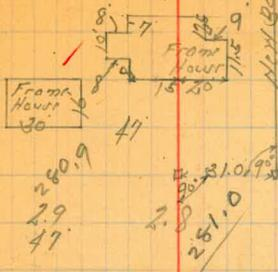 8 7 9
10 Frame
House
8 15 20 11.5
Frame
House
30 10
47
280.9
2.9
47
31.0
90°
2.8
281.0